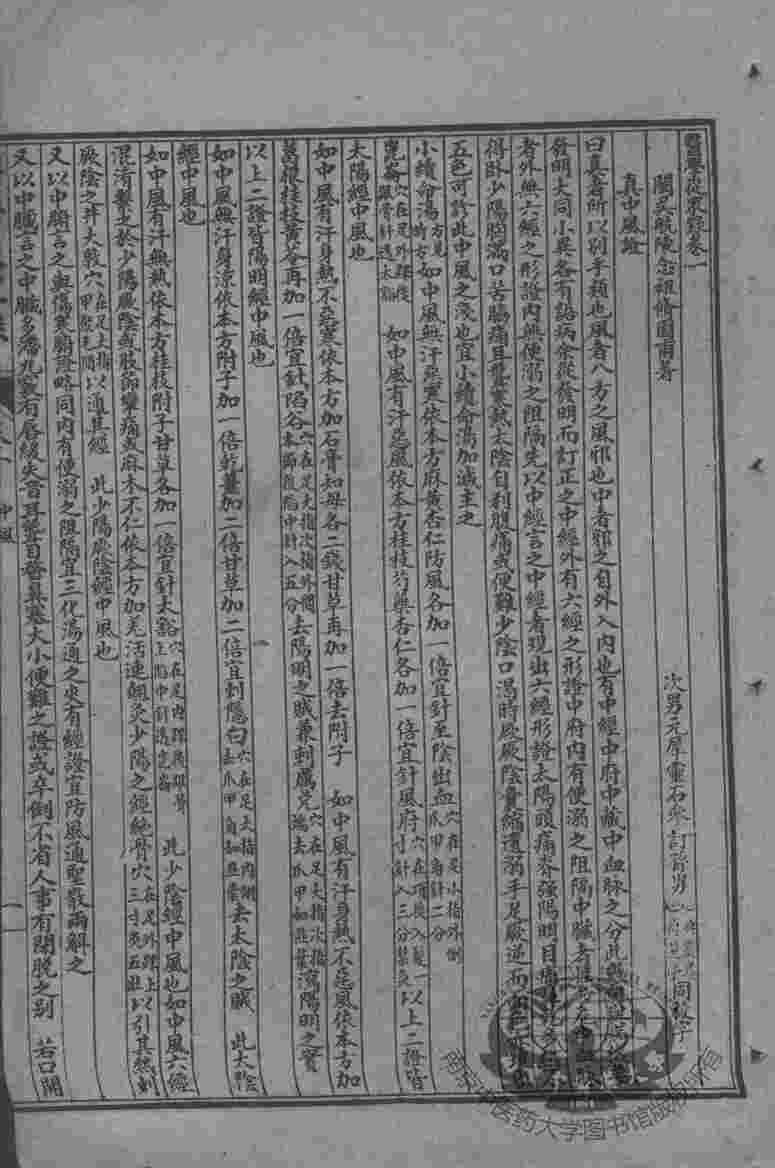 醫學從眾錄卷一
閩吳航陳念祖修園甫著
次男元犀靈石參訂 男 同校字
真中風證
曰真者所以別乎類也風者八方之風邪也中者邪之自外入內也有中經中府中臟中血脈之分此
發明大同小異各有語病余從發明而訂正之中經外有六經之形證中府內有便溺之阻隔中臟者
者外無六經之形證內無便溺之阻隔先以中經言之中經者現出六經形證太陽頭痛脊強陽明目痛
得臥少陽脇滿口苦脇痛耳聾寒熱太陰自利腹痛或便難少陰口渴時厥厥陰囊縮遺溺手足厥逆而
五色可診此中風之淺也宜小續命湯加減主之
小續命湯方見時方如中風無汗惡寒依本方麻黃杏仁防風各加一倍宜針至陰出血穴在足小指外側爪甲角針二分
崑崙穴在足外踝後跟骨針透太谿 如中風有汗惡風依本方桂枝芍藥杏仁各加一倍宜針風府穴在項後入髮一寸針入三分禁灸以上二證皆
太陽經中風也
如中風有汗身熱不惡寒依本方加石膏知母各二錢甘草再加一倍去附子 如中風有汗身熱不惡風依本方加
葛根桂枝黃芩再加一倍宜針陷谷穴在足大指次指外間本節後陷中針入五分去陽明之賊兼刺厲兌穴在足大指次指端去爪甲如韭葉瀉陽明之實
以上二證皆陽明經中風也
如中風無汗身涼依本方附子加一倍乾薑加二倍甘草加二倍宜刺隱白穴在足大指內側去爪甲角如韭葉去太陰之賊 此太陰
經中風也
如中風有汗無熱依本方桂枝附子甘草各加一倍宜針太谿穴在足內踝後跟骨上陷中針透崑崙 此少陰經中風也如中風六經
混淆繫之於少陽厥陰或肢節攣痛或麻木不仁依本方加羌活連翹灸少陽之經絕骨穴在足外踝上三寸灸五壯以引其熱刺
厥陰之井大敦穴在足大指甲後毛間以通其經 此少陽厥陰經中風也
又以中腑言之與傷寒腑證略同內有便溺之阻隔宜三化湯通之更有經證宜防風通聖散兩解之
又以中臟言之中臟多滯九竅有唇緩失音耳聾目瞀鼻塞大小便難之證或卒倒不省人事有閉脫之別 若口開
中風
南京中医药大学图书馆版权所有